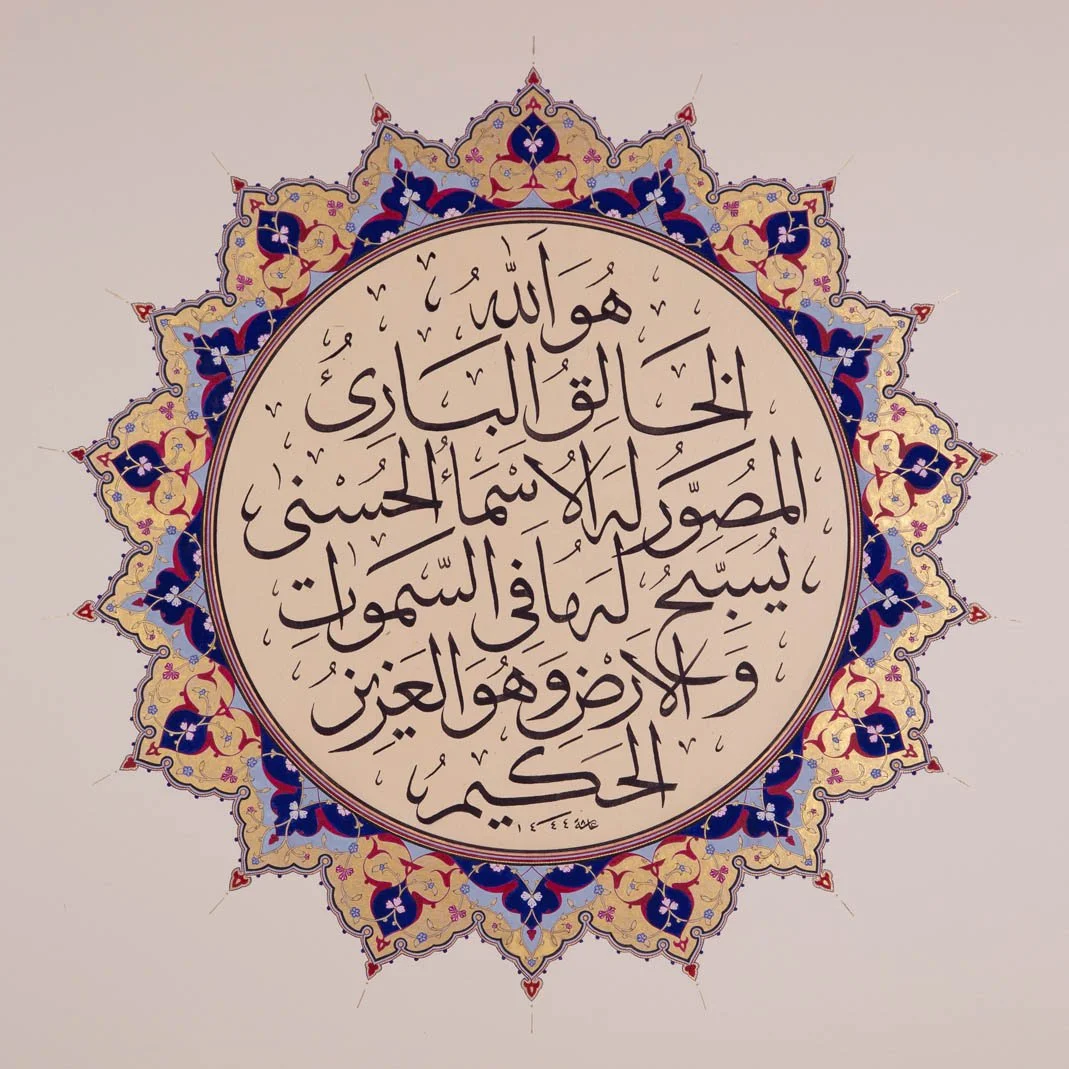 هُوَ اللّٰهُ
الخَالِقُ البَارِئُ
المُصَوِّرُ لَهُ الاَسْمَاُ الحُسْنٰى
يُسَبِّحُ لَهُ مَا فِى السَّمٰوَاتِ
وَالاَرْضِ وَهُوَ العَزِيزُ
الحَكِيمُ
١٤٤٤